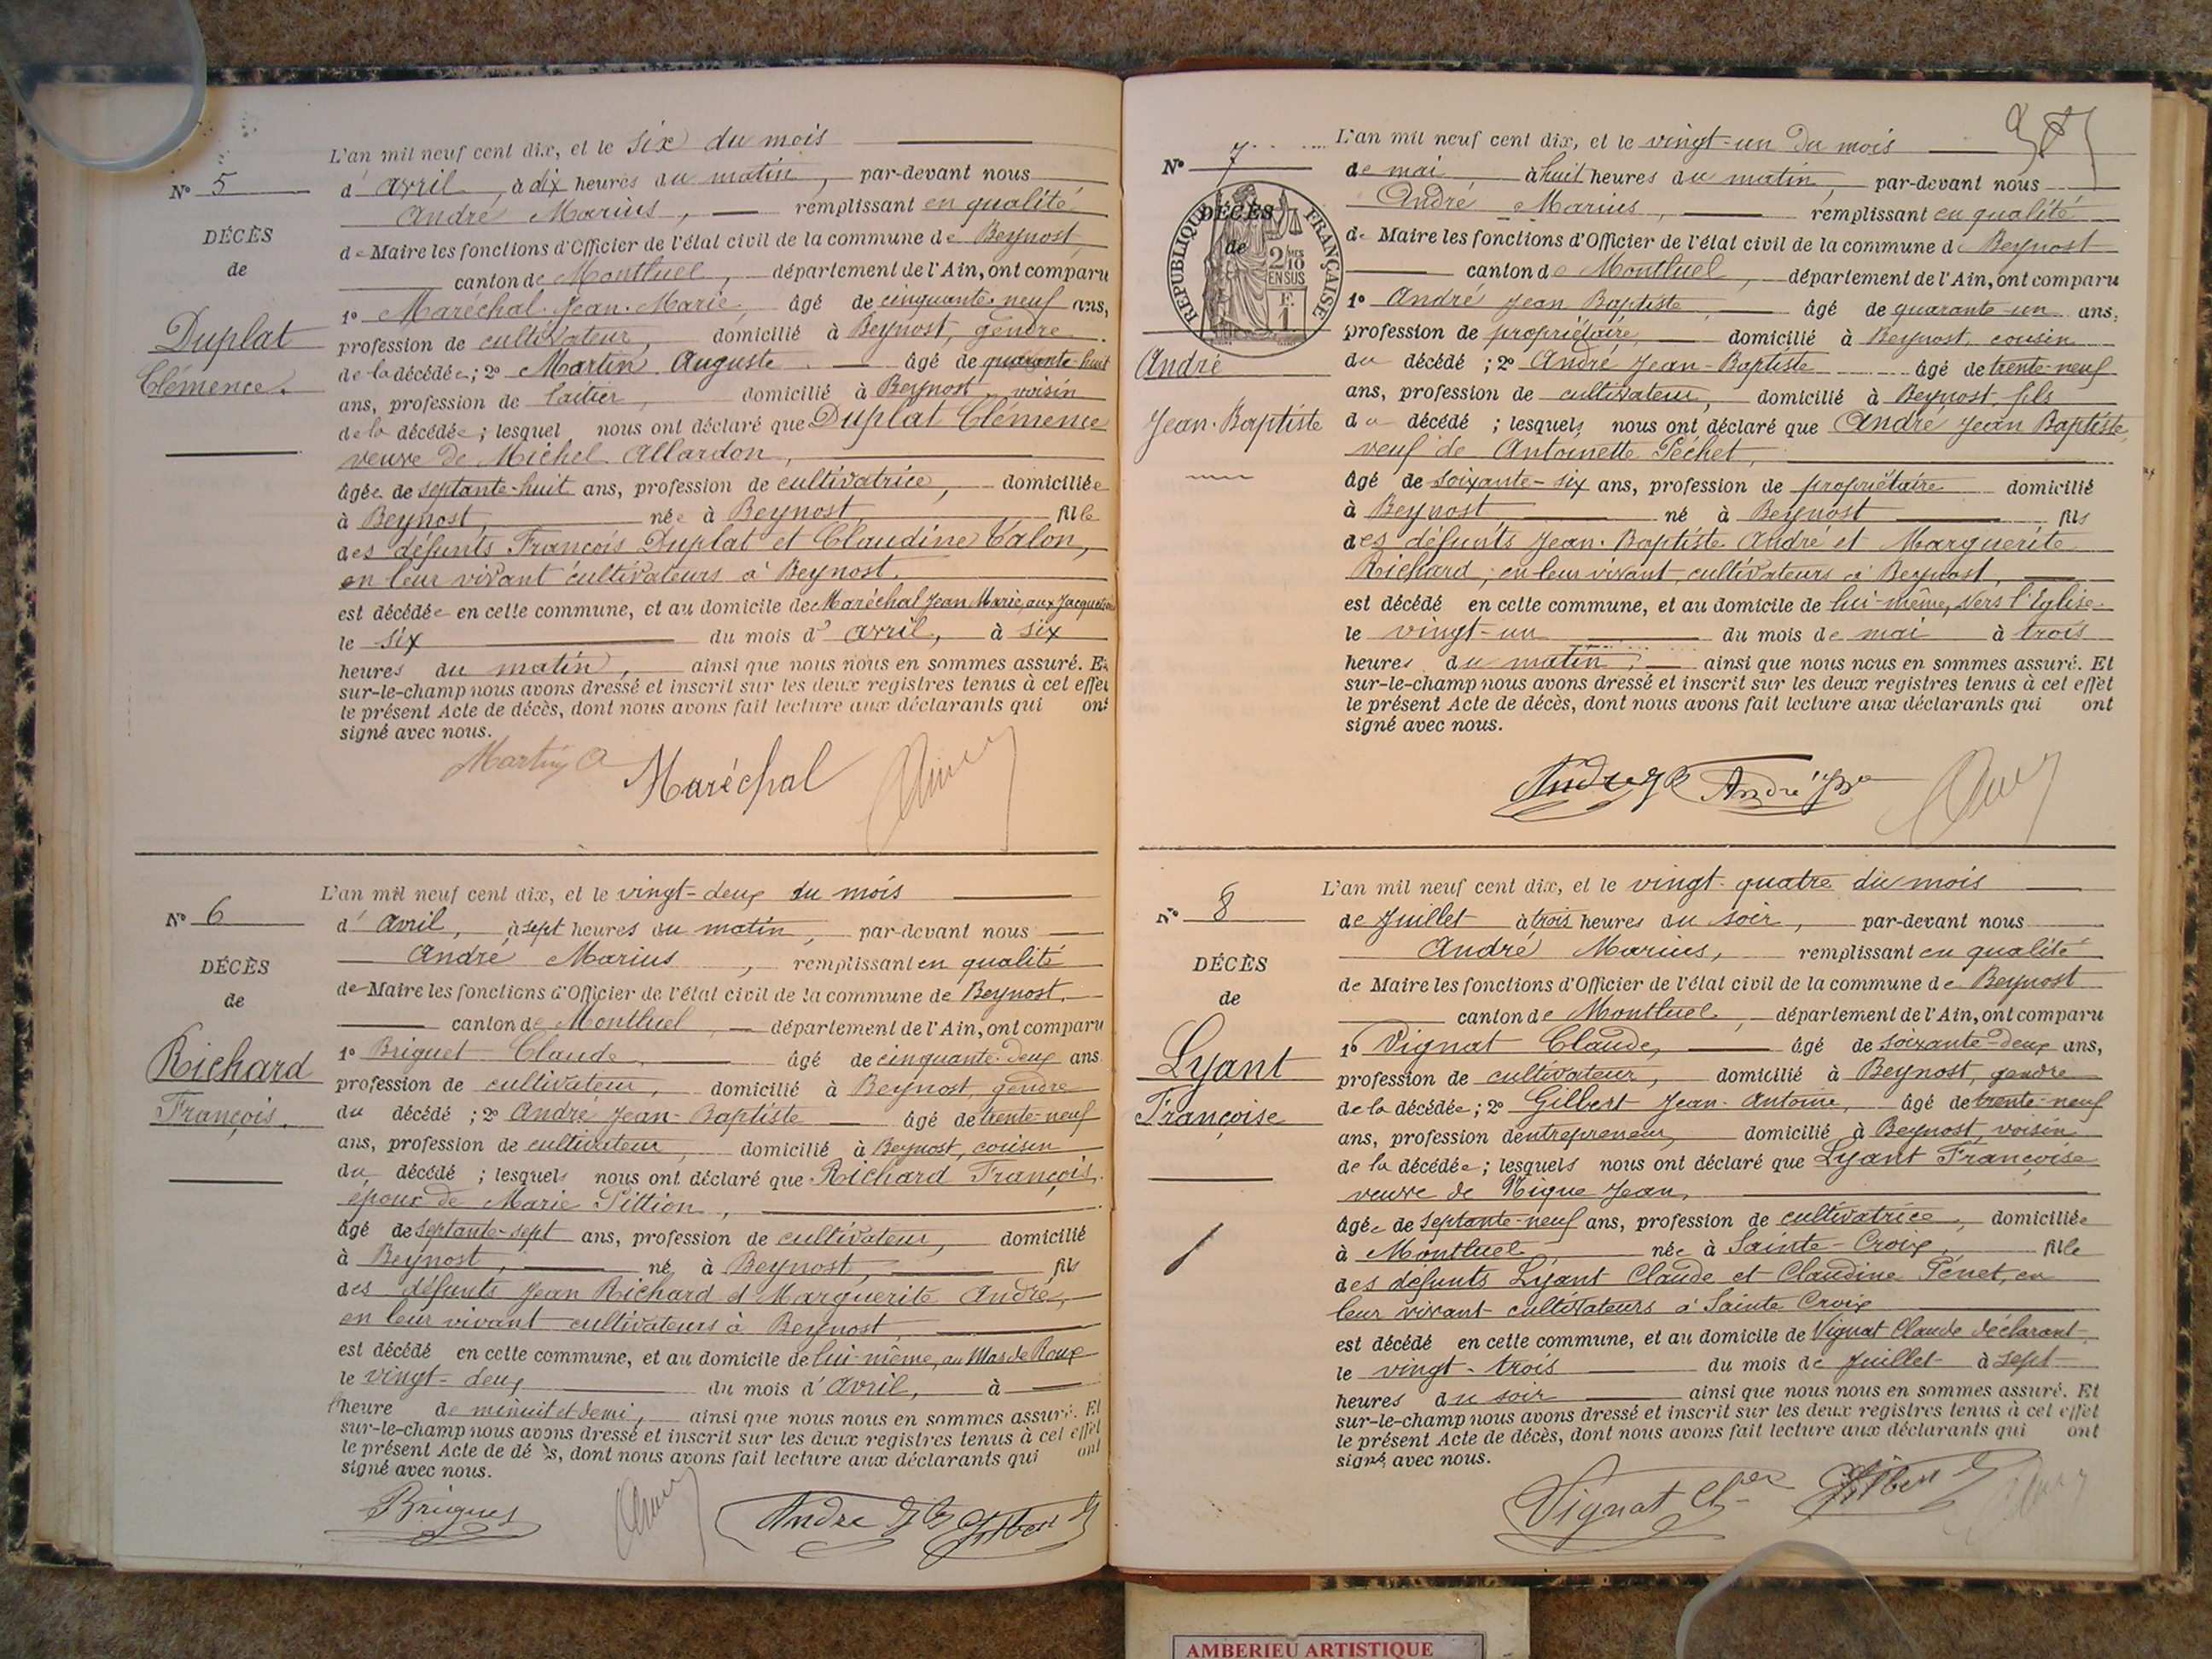 N° 5
DÉCÈS
de
Duplat
Clémence.
L'an mil neuf cent dix, et le six du mois
d'avril, à dix heures du matin, par-devant nous
André Marius, remplissant en qualité
de Maire les fonctions d'Officier de l'état civil de la commune de Beynost,
canton de Montluel, département de l'Ain, ont comparu
1° Maréchal Jean-Marie, âgé de cinquante-neuf ans,
profession de cultivateur, domicilié à Beynost, gendre
de la décédée; 2° Martin Auguste âgé de quarante-huit
ans, profession de laitier, domicilié à Beynost, voisin
de la décédée; lesquel nous ont déclaré que Duplat Clémence
veuve de Michel Allardon,
âgée de septante-huit ans, profession de cultivatrice, domiciliée
à Beynost, née à Beynost fille
des défunts François Duplat et Claudine Valon,
en leur vivant cultivateurs à Beynost.
est décédée en cette commune, et au domicile de Maréchal Jean Marie, aux
le six du mois d'avril, à six
heures du matin, ainsi que nous nous en sommes assuré. Et
sur-le-champ nous avons dressé et inscrit sur les deux registres tenus à cet effet
le présent Acte de décès, dont nous avons fait lecture aux déclarants qui ont
signé avec nous.
Martin A Maréchal
N° 6
DÉCÈS
de
Richard
François.
L'an mil neuf cent dix, et le vingt-deux du mois
d'avril, à sept heures du matin, par-devant nous
André Marius, remplissant en qualité
de Maire les fonctions d'Officier de l'état civil de la commune de Beynost,
canton de Montluel, département de l'Ain, ont comparu
1° Briguet Claude, âgé de cinquante-deux ans
profession de cultivateur, domicilié à Beynost, gendre
du décédé; 2° André Jean-Baptiste âgé de trente-neuf
ans, profession de cultivateur, domicilié à Beynost, cousin
du décédé; lesquels nous ont déclaré que Richard François,
époux de Marie Pittion,
âgé de septante-sept ans, profession de cultivateur, domicilié
à Beynost, né à Beynost, fils
des défunts Jean Richard et Marguerite André,
en leur vivant cultivateurs à Beynost,
est décédé en cette commune, et au domicile de lui-même, au Mas de Roux
le vingt-deux du mois d'avril, à
l'heure de minuit et demi, ainsi que nous nous en sommes assuré. Et
sur-le-champ nous avons dressé et inscrit sur les deux registres tenus à cet effet
le présent Acte de décès, dont nous avons fait lecture aux déclarants qui ont
signé avec nous.
Briguet Andre J B Gilbert
N° 7
REPUBLIQUE FRANÇAISE
2/10 EN SUS
F. 1
DÉCÈS
de
André
Jean-Baptiste
L'an mil neuf cent dix, et le vingt-un du mois
de mai à huit heures du matin, par-devant nous
André Marius, remplissant en qualité
de Maire les fonctions d'Officier de l'état civil de la commune de Beynost
canton de Montluel, département de l'Ain, ont comparu
1° André Jean Baptiste, âgé de quarante-un ans,
profession de propriétaire, domicilié à Beynost, cousin
du décédé; 2° André Jean-Baptiste âgé de trente-neuf
ans, profession de cultivateur, domicilié à Beynost, fils
du décédé; lesquels nous ont déclaré que André Jean Baptiste,
veuf de Antoinette Péchet,
âgé de soixante-six ans, profession de propriétaire domicilié
à Beynost né à Beynost fils
des défunts Jean-Baptiste André et Marguerite
Richard, en leur vivant, cultivateurs à Beynost,
est décédé en cette commune, et au domicile de lui-même, vers l'Eglise
le vingt-un du mois de mai à trois
heures du matin, ainsi que nous nous en sommes assuré. Et
sur-le-champ nous avons dressé et inscrit sur les deux registres tenus à cet effet
le présent Acte de décès, dont nous avons fait lecture aux déclarants qui ont
signé avec nous.
Andre J B André
N° 8
DÉCÈS
de
Lyant
Françoise
L'an mil neuf cent dix, et le vingt-quatre du mois
de Juillet à trois heures du soir, par-devant nous
André Marius, remplissant en qualité
de Maire les fonctions d'Officier de l'état civil de la commune de Beynost
canton de Montluel, département de l'Ain, ont comparu
1° Vignat Claude, âgé de soixante-deux ans,
profession de cultivateur, domicilié à Beynost, gendre
de la décédée; 2° Gilbert Jean-Antoine, âgé de trente-neuf
ans, profession d'entrepreneur, domicilié à Beynost, voisin
de la décédée; lesquels nous ont déclaré que Lyant Françoise
veuve de Nique Jean,
âgée de septante-neuf ans, profession de cultivatrice, domiciliée
à Montluel, née à Sainte-Croix, fille
des défunts Lyant Claude et Claudine Penet, en
leur vivant cultivateurs à Sainte Croix
est décédé en cette commune, et au domicile de Vignat Claude déclarant
le vingt-trois du mois de Juillet à sept
heures du soir ainsi que nous nous en sommes assuré. Et
sur-le-champ nous avons dressé et inscrit sur les deux registres tenus à cet effet
le présent Acte de décès, dont nous avons fait lecture aux déclarants qui ont
signé avec nous.
Vignat Gilbert
AMBERIEU ARTISTIQUE